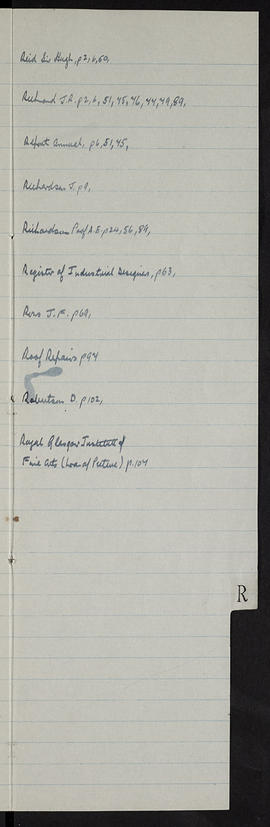 Reid Sir Hugh, p2, 6, 60,
Richmond J.R. p2, 6, 51, 45, 46, 44, 49, 89,
Report Annual, p6, 51, 45,
Richardson J. p9,
Richardson Prof A.E. p24, 56, 89,
Register of Industrial Designers, p63,
Ross J. F. p69,
Roof Repairs p94
Robertson D. p102,
Royal Glasgow Institute of
Fine Arts (Loan of Picture) p.104
R